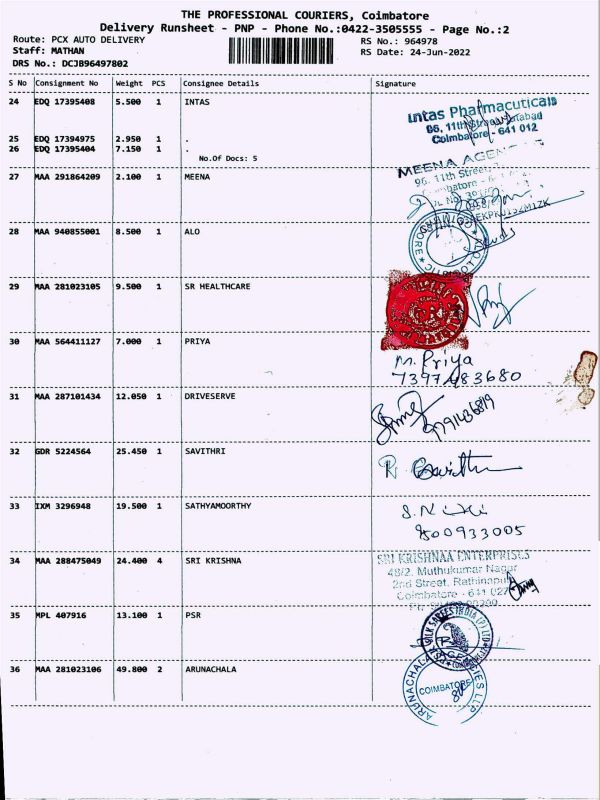 THE PROFESSIONAL COURIERS, Coimbatore
Delivery Runsheet - PNP - Phone No.:0422-3505555 - Page No.:2
Route: PCX AUTO DELIVERY RS No.: 964978
Staff: MATHAN RS Date: 24-Jun-2022
DRS No.: DCJB96497802
S No Consignment No Weight PCS Consignee Details Signature
24 EDQ 17395408 5.500 1 INTAS
Intas Pharmacuticals
96, 11th Street
Coimbatore - 641 012
25 EDQ 17394975 2.950 1 .
26 EDQ 17395404 7.150 1 .
No.Of Docs: 5
27 MAA 291864209 2.100 1 MEENA
MEENA
96, 11th Street
28 MAA 940855001 8.500 1 ALO
29 MAA 281023105 9.500 1 SR HEALTHCARE
30 MAA 564411127 7.000 1 PRIYA
M. Priya
7397483680
31 MAA 287101434 12.050 1 DRIVESERVE
9791436819
32 GDR 5224564 25.450 1 SAVITHRI
R Savithri
33 IXM 3296948 19.500 1 SATHYAMOORTHY
800933005
34 MAA 288475049 24.400 4 SRI KRISHNA
SRI KRISHNAA ENTERPRISES
48/2, Muthukumar Nagar
2nd Street, Rathinapuri
Coimbatore - 641 027
35 MPL 407916 13.100 1 PSR
SILK SAREES INDIA (P) LTD
36 MAA 281023106 49.800 2 ARUNACHALA
ARUNACHALA AGENCIES LLP
COIMBATORE